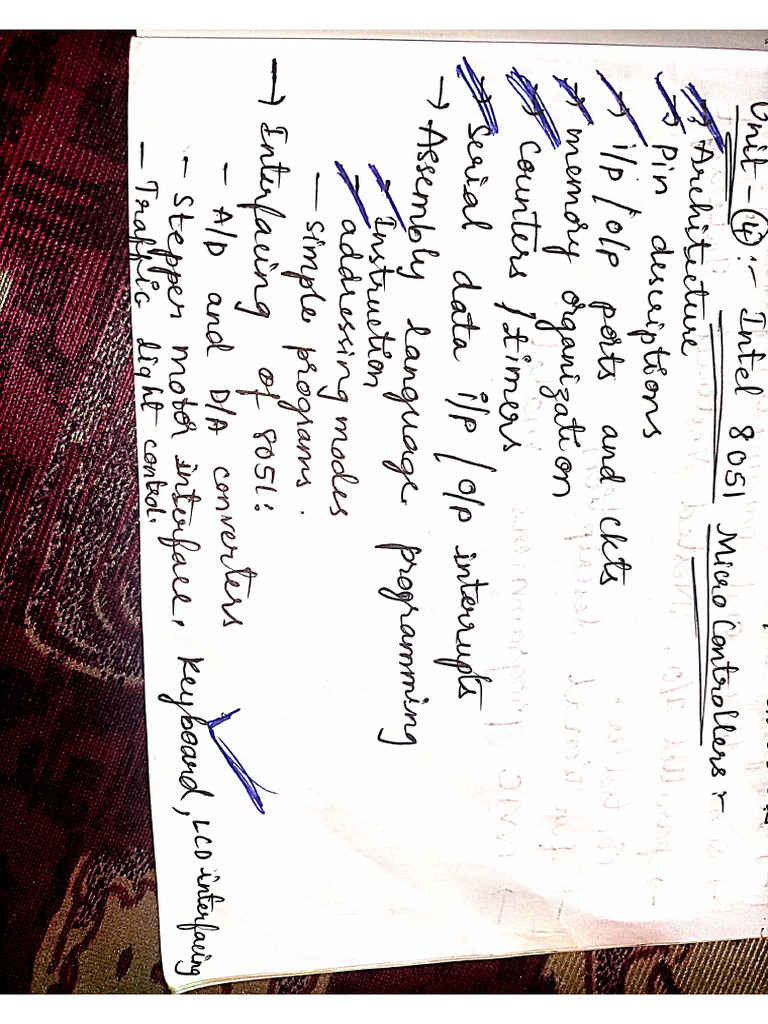 Unit-④:- Intel 8051 MicroControllers:-
→ Architecture
→ Pin descriptions
→ i/p /o/p ports and ckts
→ memory organization
→ counters /timers
→ Serial data i/p / o/p interrupts
→ Assembly language programming
- Instruction
- addressing modes
- simple programs.
→ Interfacing of 8051:
- A/D and D/A converters
- Stepper motor interface, Keyboard, LCD interfacing
- Traffic light control.